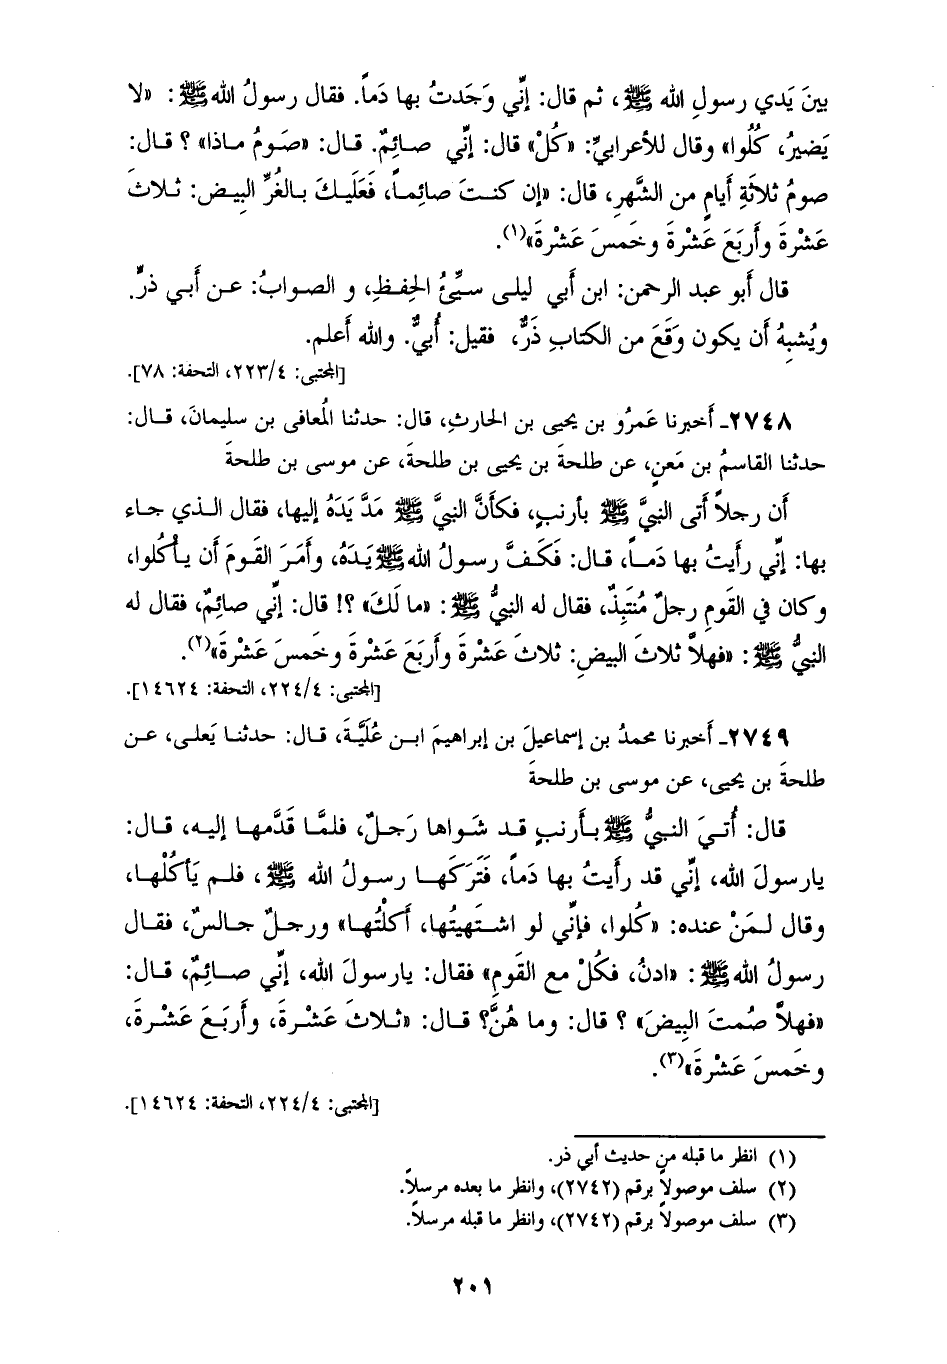 بينَ يَدي رسولِ الله ﷺ، ثم قال: إنِّي وَجَدتُ بها دَماً. فقال رسولُ الله ﷺ: «لا
يَضيرُ، كُلُوا» وقال للأعرابيِّ: «كُلْ» قال: إنِّي صائِمٌ. قال: «صَومُ ماذا» ؟ قال:
صومُ ثلاثَةِ أيامٍ من الشَّهرِ، قال: «إن كنتَ صائِماً، فَعَلَيكَ بالغُرِّ البِيض: ثلاثَ
عَشْرةَ وأربَعَ عَشْرةَ وخَمسَ عَشْرةَ»(١).
قال أبو عبد الرحمن: ابن أبي ليلى سيِّئُ الحِفظِ، و الصوابُ: عن أبي ذرٍّ.
ويُشبِهُ أن يكون وَقَعَ من الكتابِ ذَرٌّ، فقيل: أُبيٌّ. والله أعلم.
[المجتبى: ٢٢٣/٤، التحفة: ٧٨].
٢٧٤٨ـ أخبرنا عَمرُو بن يحيى بن الحارثِ، قال: حدثنا المُعافى بن سليمانَ، قال:
حدثنا القاسمُ بن مَعنٍ، عن طلحةَ بن يحيى بن طلحةَ، عن موسى بن طلحةَ
أن رجلاً أتى النبيَّ ﷺ بأرنبٍ، فكأنَّ النبيَّ ﷺ مَدَّ يَدَهُ إليها، فقال الذي جاء
بها: إنِّي رأيتُ بها دَماً، قال: فَكَفَّ رسولُ الله ﷺ يَدَهُ، وأمَرَ القَومَ أن يأكُلوا،
وكان في القَومِ رجلٌ مُنتَبِذٌ، فقال له النبيُّ ﷺ: «ما لَكَ» ؟! قال: إنِّي صائِمٌ، فقال له
النبيُّ ﷺ: «فهلاَّ ثلاثَ البيض: ثلاثَ عَشْرةَ وأربَعَ عَشْرةَ وخَمسَ عَشْرةَ»(٢).
[المجتبى: ٢٢٤/٤، التحفة: ١٤٦٢٤].
٢٧٤٩ـ أخبرنا محمدُ بن إسماعيلَ بن إبراهيمَ ابن عُلَيَّةَ، قال: حدثنا يَعلى، عن
طلحةَ بن يحيى، عن موسى بن طلحةَ
قال: أُتيَ النبيُّ ﷺ بأرنبٍ قد شَواها رَجلٌ، فلمَّا قَدَّمها إليه، قال:
يارسولَ الله، إنِّي قد رأيتُ بها دَماً، فَتَرَكَها رسولُ الله ﷺ، فلم يَأكُلْها،
وقال لمَنْ عنده: «كُلوا، فإنِّي لو اشتَهيتُها، أكَلْتُها» ورجلٌ جالسٌ، فقال
رسولُ الله ﷺ: «ادنُ، فكُلْ مع القَومِ» فقال: يارسولَ الله، إنِّي صائِمٌ، قال:
«فهلاَّ صُمتَ البِيضَ» ؟ قال: وما هُنَّ؟ قال: «ثلاثَ عَشْرةَ، وأربَعَ عَشْرةَ،
وخَمسَ عَشْرةَ»(٣).
[المجتبى: ٢٢٤/٤، التحفة: ١٤٦٢٤].
(١) انظر ما قبله من حديث أبي ذر.
(٢) سلف موصولاً برقم (٢٧٤٢)، وانظر ما بعده مرسلاً.
(٣) سلف موصولاً برقم (٢٧٤٢)، وانظر ما قبله مرسلاً.
٢٠١